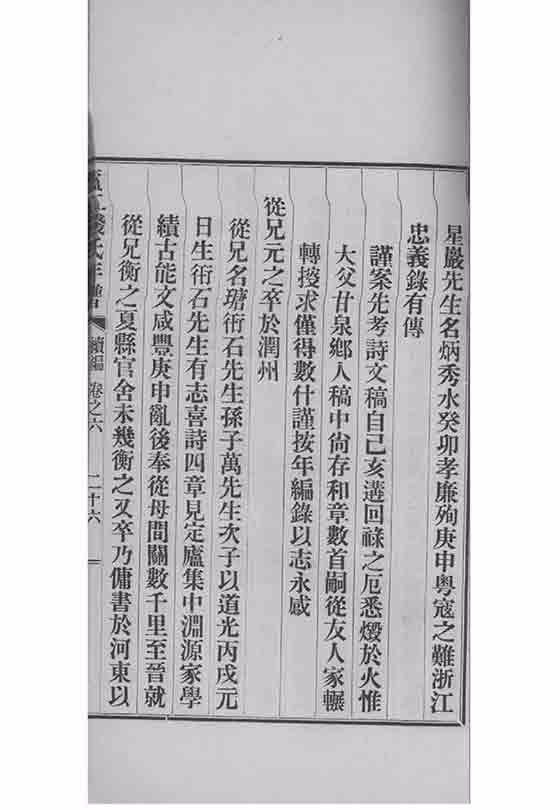 星巖先生名炳秀水癸卯孝廉殉庚申粵寇之難浙江
忠義錄有傳
謹案先考詩文稿自己亥遘回祿之厄悉燬於火惟
大父甘泉鄉人稿中尙存和章數首嗣從友人家輾
轉搜求僅得數什謹按年編錄以志永感
從兄元之卒於潤州
從兄名瑭衎石先生孫子萬先生次子以道光丙戌元
日生衎石先生有志喜詩四章見定廬集中淵源家學
績古能文咸豐庚申亂後奉從母間關數千里至晉就
從兄衡之夏縣官舍未幾衡之又卒乃傭書於河東以
錢氏年譜 續編 卷之六 二十六